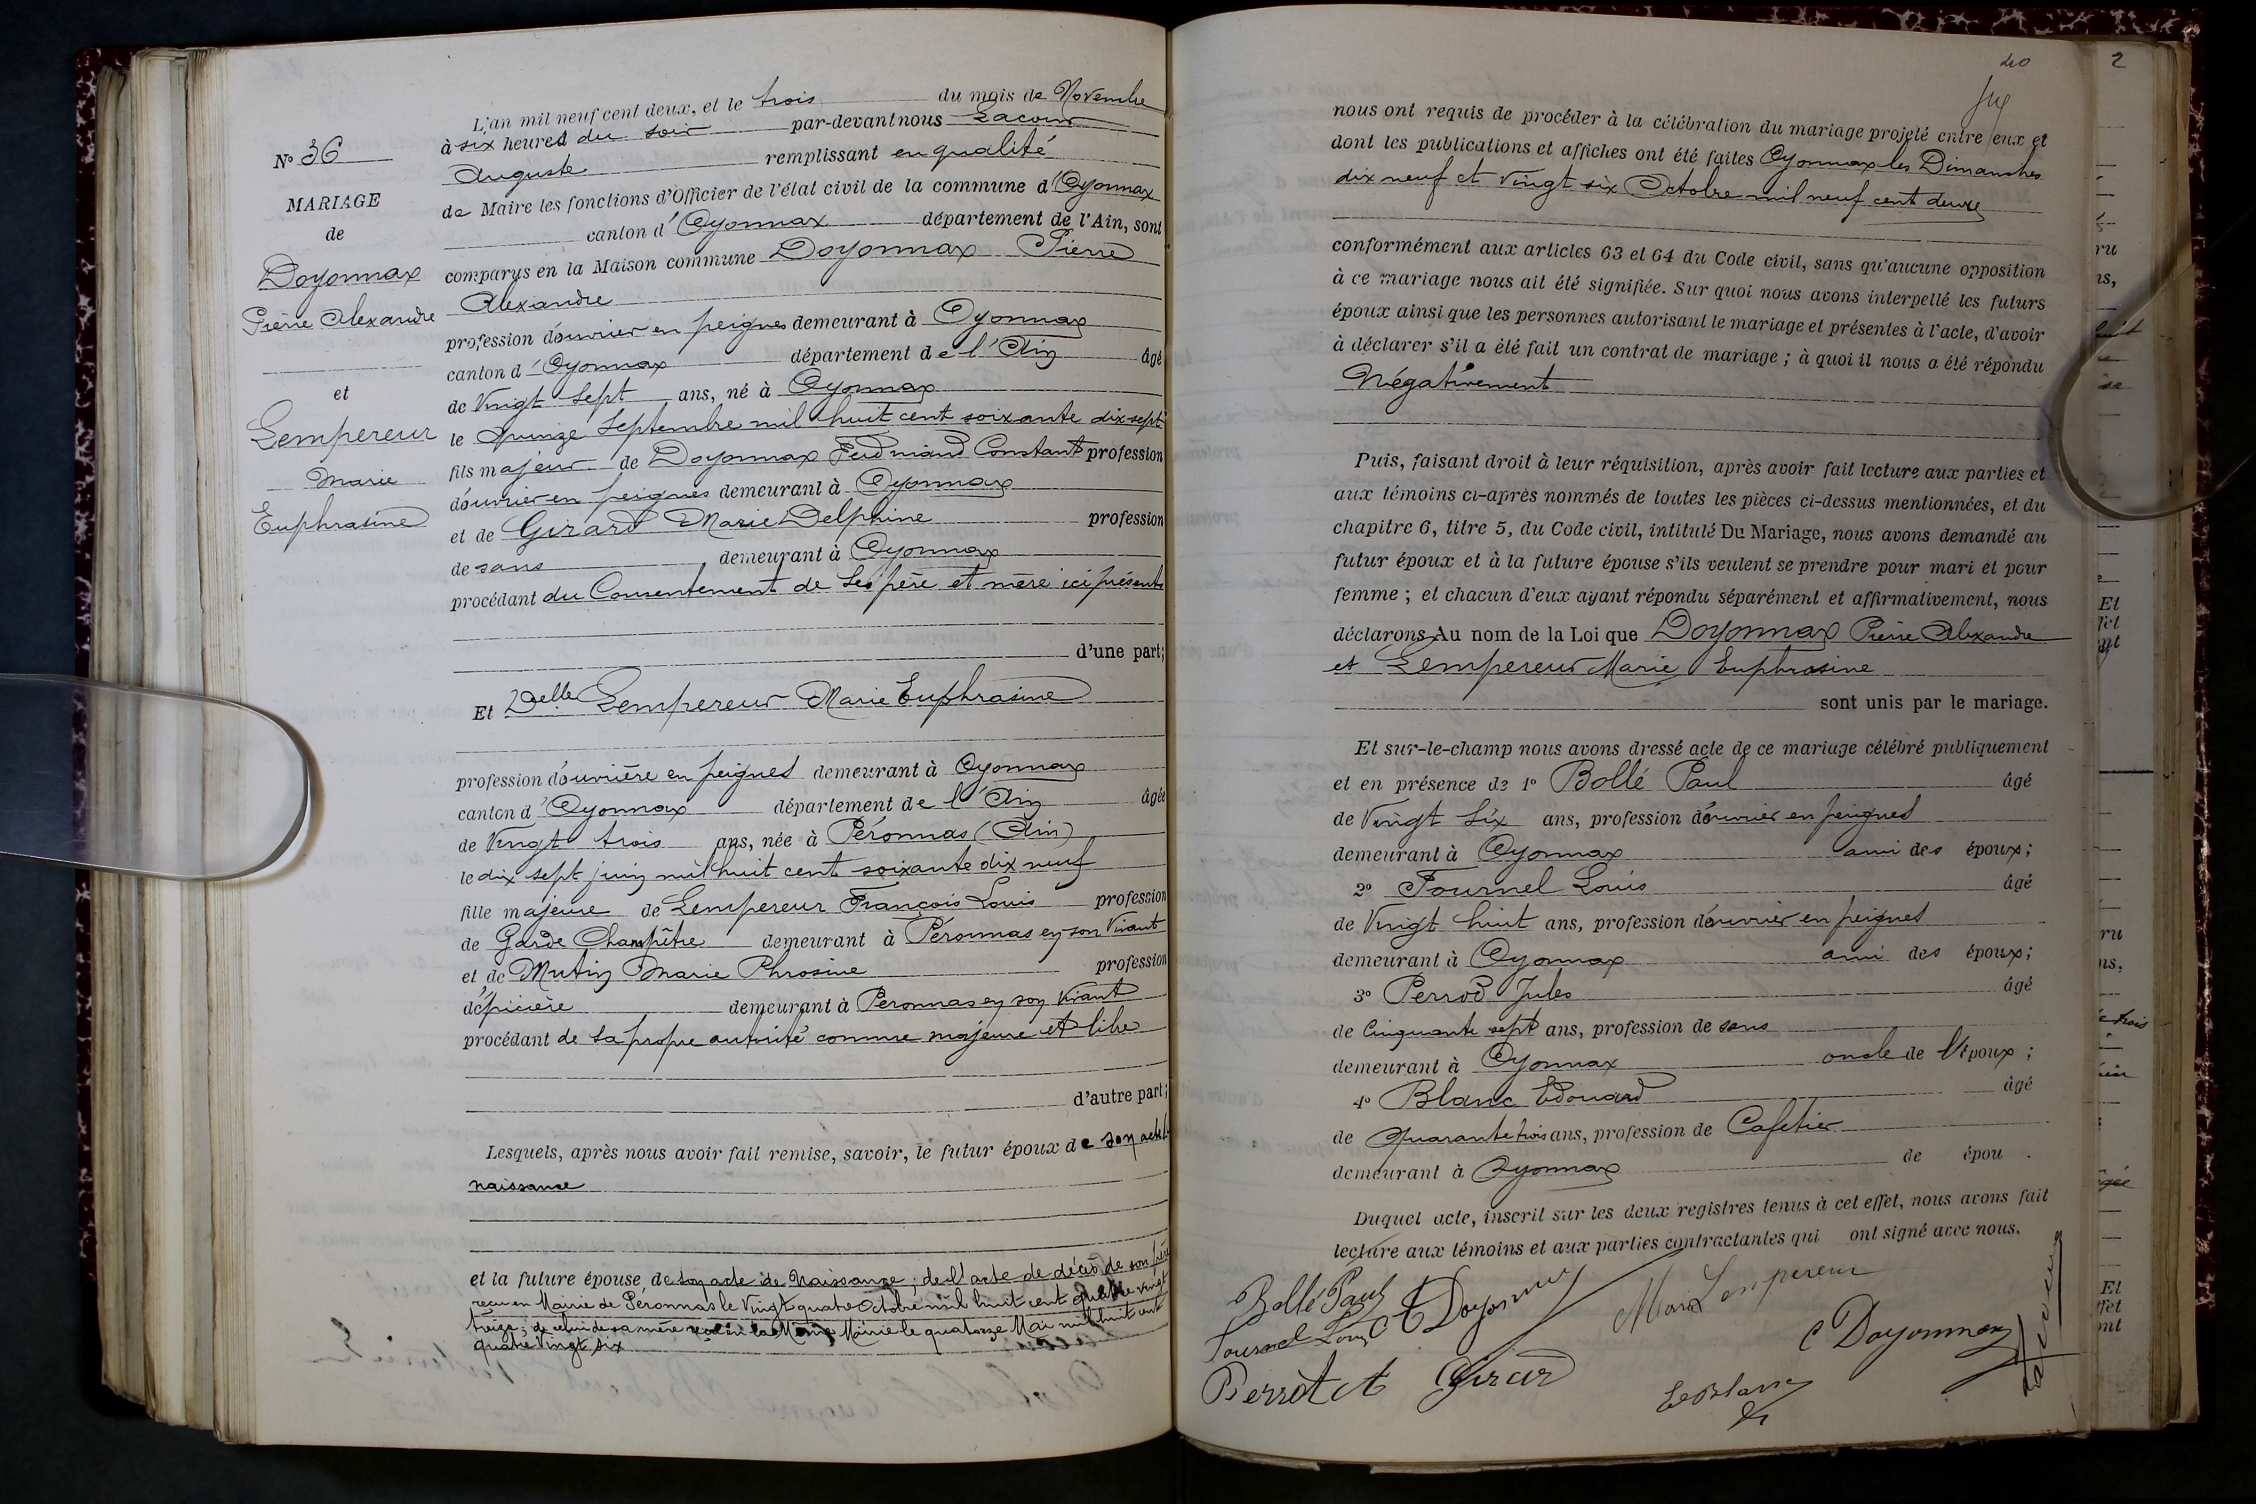 L'an mil neuf cent deux, et le trois du mois de Novembre
à six heures du soir par-devant nous Lacour
Auguste remplissant en qualité
de Maire les fonctions d'Officier de l'état civil de la commune d'Oyonnax
canton d'Oyonnax département de l'Ain, sont
comparus en la Maison commune Doyonnax Pierre
Alexandre
profession d'ouvrier en peignes demeurant à Oyonnax
canton d'Oyonnax département de l'Ain âgé
de Vingt Sept ans, né à Oyonnax
le Quinze Septembre mil huit cent soixante dix sept
fils majeur de Doyonnax Ferdinand Constant profession
d'ouvrier en peignes demeurant à Oyonnax
et de Girard Marie Delphine profession
de sans demeurant à Oyonnax
procédant du Consentement de Ses père et mère ici présents
d'une part;
Et Delle Lempereur Marie Euphrasine
profession d'ouvrière en peignes demeurant à Oyonnax
canton d'Oyonnax département de l'Ain âgée
de Vingt trois ans, née à Péronnas (Ain)
le dix sept juin mil huit cent soixante dix neuf
fille majeure de Lempereur François Louis profession
de Garde Champêtre demeurant à Péronnas en son Vivant
et de Mutin Marie Phrosine profession
d'épicière demeurant à Peronnas en son Vivant
procédant de sa propre autorité comme majeure et libre
d'autre part;
Lesquels, après nous avoir fait remise, savoir, le futur époux de son acte de
naissance
et la future épouse de son acte de Naissance; de l'acte de décès de son père
reçu en Mairie de Péronnas le Vingt quatre Octobre mil huit cent quatre vingt
treize; de celui de sa mère reçu en la Même Mairie le quatorze Mai mil huit cent
quatre Vingt six
N° 36
MARIAGE
de
Doyonnax
Pierre Alexandre
et
Lempereur
Marie
Euphrasine
40
nous ont requis de procéder à la célébration du mariage projeté entre eux et
dont les publications et affiches ont été faites Oyonnax les Dimanches
dix neuf et vingt six Octobre mil neuf cent deux
conformément aux articles 63 et 64 du Code civil, sans qu'aucune opposition
à ce mariage nous ait été signifiée. Sur quoi nous avons interpellé les futurs
époux ainsi que les personnes autorisant le mariage et présentes à l'acte, d'avoir
à déclarer s'il a été fait un contrat de mariage; à quoi il nous a été répondu
Négativement
Puis, faisant droit à leur réquisition, après avoir fait lecture aux parties et
aux témoins ci-après nommés de toutes les pièces ci-dessus mentionnées, et du
chapitre 6, titre 5, du Code civil, intitulé Du Mariage, nous avons demandé au
futur époux et à la future épouse s'ils veulent se prendre pour mari et pour
femme; et chacun d'eux ayant répondu séparément et affirmativement, nous
déclarons Au nom de la Loi que Doyonnax Pierre Alexandre
et Lempereur Marie Euphrasine
sont unis par le mariage.
Et sur-le-champ nous avons dressé acte de ce mariage célébré publiquement
et en présence de 1° Bollé Paul âgé
de Vingt Six ans, profession d'ouvrier en peignes
demeurant à Oyonnax ami des époux;
2° Fournel Louis âgé
de Vingt huit ans, profession d'ouvrier en peignes
demeurant à Oyonnax ami des époux;
3° Perrod Jules âgé
de Cinquante sept ans, profession de sans
demeurant à Oyonnax oncle de l'époux;
4° Blanc Edouard âgé
de Quarante trois ans, profession de Cafetier
demeurant à Oyonnax de épou .
Duquel acte, inscrit sur les deux registres tenus à cet effet, nous avons fait
lecture aux témoins et aux parties contractantes qui ont signé avec nous.
Bollé Paul A Doyonnax Marie Lempereur
Fournel Louis C Doyonnax
Perrot A Girard
Lacour
2